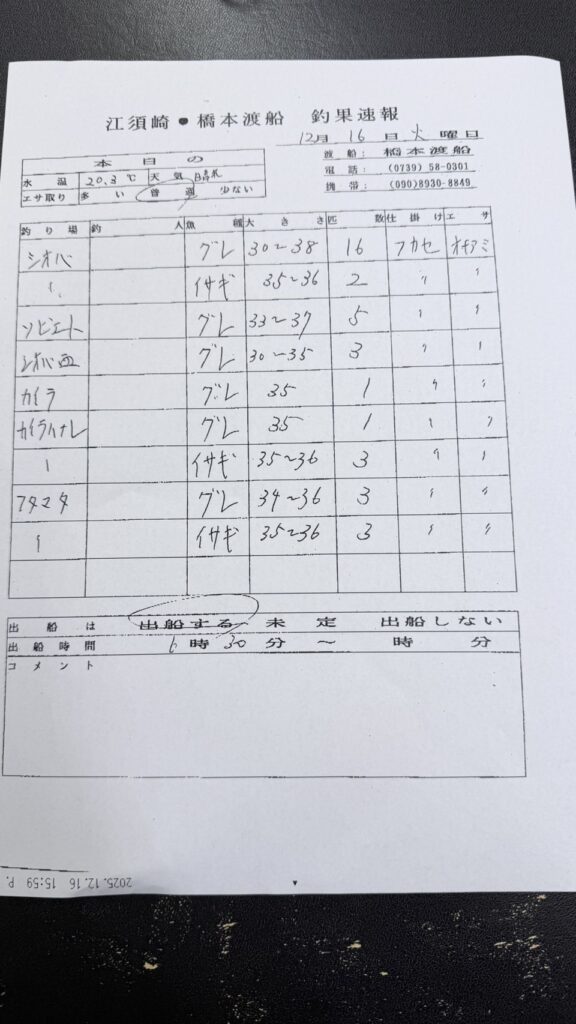 江須崎●橋本渡船 釣果速報
12月 16日 火曜日
本日の
水温 20.3℃ 天気 晴れ
エサ取り 多い 普通 少ない
渡船: 橋本渡船
電話: (0739) 58-0301
携帯: (090)8930-8849
釣り場 釣人 魚種 大きさ 匹数 仕掛け エサ
シオバ グレ 30~38 16 フカセ オキアミ
〃 イサギ 35~36 2 〃 〃
ソビエト グレ 33~37 5 〃 〃
シオバ西 グレ 30~35 3 〃 〃
カイラ グレ 35 1 〃 〃
カイラハナレ グレ 35 1 〃 〃
〃 イサギ 35~36 3 〃 〃
フタマタ グレ 34~36 3 〃 〃
〃 イサギ 35~36 3 〃 〃
出船は 出船する 未定 出船しない
出船時間 6時30分 ~ 時 分
コメント
2025.12.16 15:59 P.